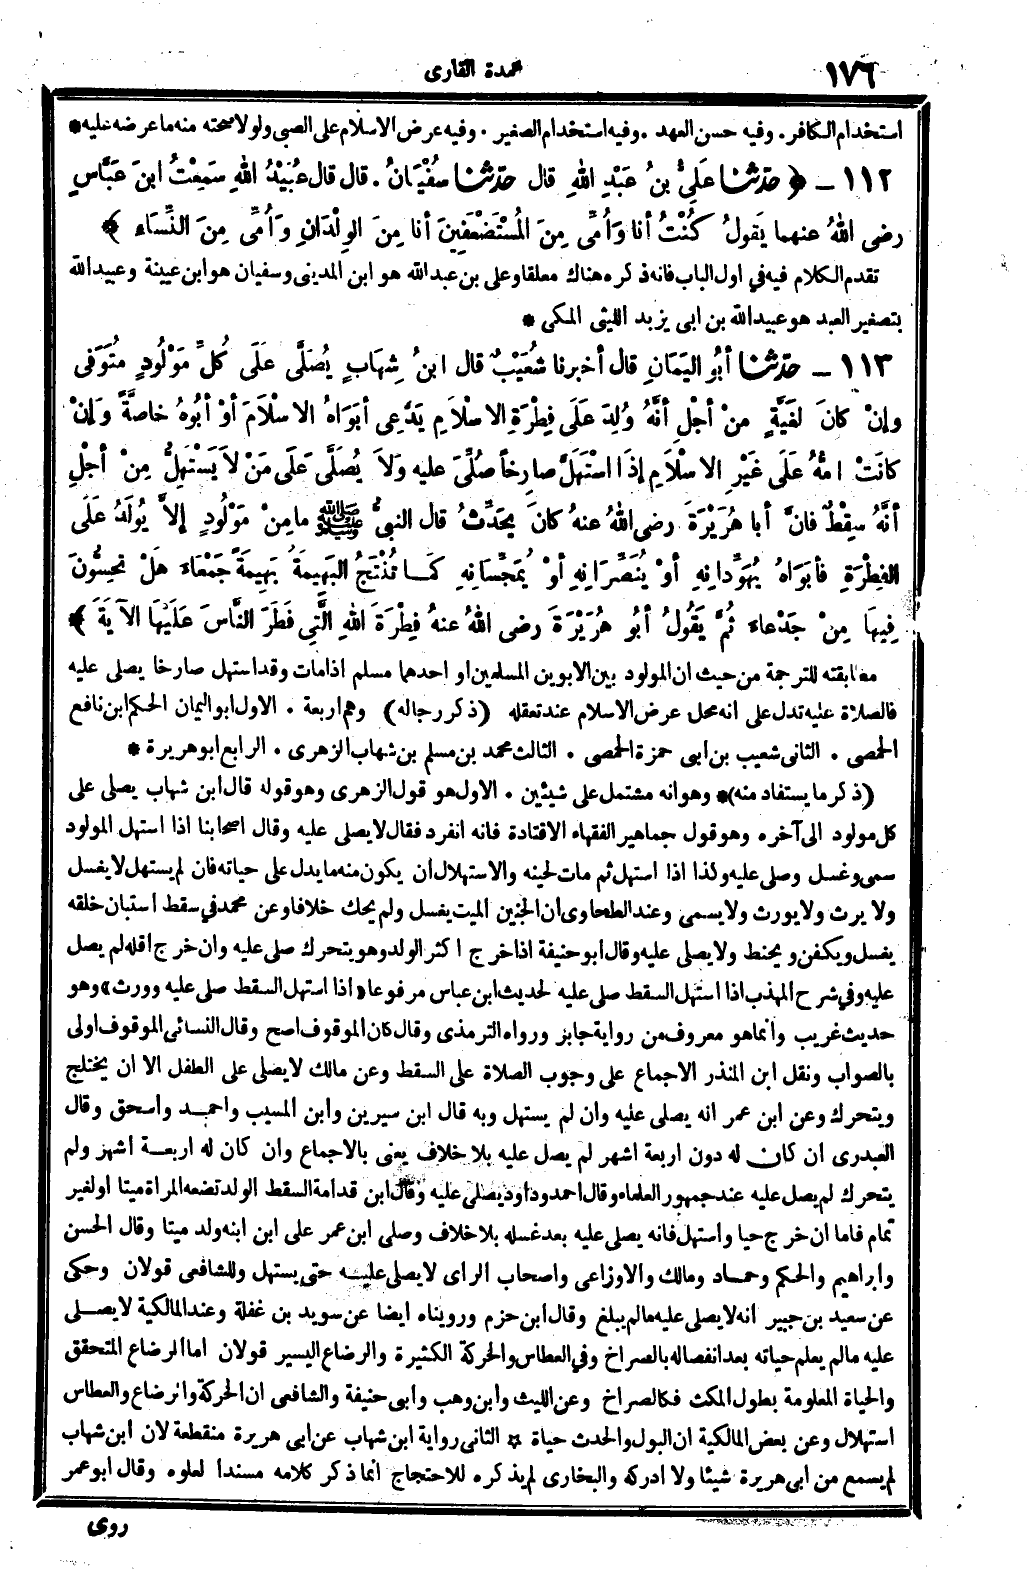 ١٧٦
عمدة القارى
استخدام الكافر . وفيه حسن العهد . وفيه استخدام الصغير . وفيه عرض الاسلام على الصبى ولولا صحته منه ما عرضه عليه *
١١٢ ـ ﴿ حَدَّثَنَا عَلِيُّ بنُ عَبْدِ اللهِ قال حَدَّثَنَا سُفْيَانُ . قال قال عُبَيْدُ اللهِ سَمِعْتُ ابنَ عَبَّاسٍ
رضى اللهُ عنهما يَقولُ كُنْتُ أنا وَأُمِّى مِنَ المُسْتَضْعَفِينَ أنا مِنَ الوِلْدَانِ وَأُمِّى مِنَ النِّسَاء ﴾
تقدم الكلام فيه في اول الباب فانه ذكره هناك معلقا وعلى بن عبد الله هو ابن المدينى وسفيان هو ابن عيينة وعبيد الله
بتصغير العبد هو عبيد الله بن ابى يزيد الليثى المكى *
١١٣ ـ حَدَّثَنَا أبُو اليَمَانِ قال أخبرنا شُعَيْبٌ قال ابنُ شِهَابٍ يُصَلَّى عَلَى كُلِّ مَوْلُودٍ مُتَوَفى
وإنْ كانَ لِغَيَّةٍ منْ أجْلِ أنَّهُ وُلِدَ عَلَى فِطْرَةِ الاسْلاَمِ يَدَّعِى أبَوَاهُ الاسْلاَمَ أوْ أبُوهُ خاصَّةً وَإنْ
كانَتْ أمُّهُ عَلَى غَيْرِ الاسْلاَمِ إذَا اسْتَهَلَّ صارِخاً صُلِّىَ عليه وَلاَ يُصَلَّى عَلَى مَنْ لاَ يَسْتَهِلُّ مِنْ أجْلِ
أنَّهُ سِقْطٌ فانَّ أبا هُرَيْرَةَ رضى اللهُ عنهُ كانَ يُحَدِّثُ قال النبىُّ ﷺ مامِنْ مَوْلُودٍ إلاَّ يُولَدُ عَلَى
الفِطْرَةِ فأبَوَاهُ يُهَوِّدانِهِ أوْ يُنَصِّرَانِهِ أوْ يُمَجِّسَانِهِ كما تُنْتَجُ البَهِيمَةُ بَهِيمَةً جَمْعَاءَ هَلْ تُحِسُّونَ
فِيهَا مِنْ جَدْعاءَ ثُمَّ يَقُولُ أبُو هُرَيْرَةَ رضى اللهُ عنهُ فِطْرَةَ اللهِ الَّتِي فَطَرَ النَّاسَ عَلَيْهَا الآيَةَ ﴾
مطابقته للترجمة من حيث ان المولود بين الابوين المسلمين او احدهما مسلم اذا مات وقد استهل صارخا يصلى عليه
فالصلاة عليه تدل على انه محل عرض الاسلام عند تعقله (ذكر رجاله) وهم اربعة . الاول ابو اليمان الحكم ابن نافع
الحمصى . الثانى شعيب بن ابى حمزة الحمصى . الثالث محمد بن مسلم بن شهاب الزهرى . الرابع ابو هريرة *
(ذكر ما يستفاد منه)* وهو انه مشتمل على شيئين . الاول هو قول الزهرى وهو قوله قال ابن شهاب يصلى على
كل مولود الى آخره وهو قول جماهير الفقهاء الا قتادة فانه انفرد فقال لا يصلى عليه وقال اصحابنا اذا استهل المولود
سمى وغسل وصلى عليه ولذا اذا استهل ثم مات لحينه والاستهلال أن يكون منه ما يدل على حياته فان لم يستهل لا يغسل
ولا يرث ولا يورث ولا يسمى وعند الطحاوى ان الجنين الميت يغسل ولم يحك خلافا وعن محمد في سقط استبان خلقه
يغسل ويكفن ويحنط ولا يصلى عليه وقال ابو حنيفة اذا خرج اكثر الولد وهو يتحرك صلى عليه وان خرج اقله لم يصل
عليه وفي شرح المهذب اذا استهل السقط صلى عليه لحديث ابن عباس مرفوعا «اذا استهل السقط صلى عليه وورث» وهو
حديث غريب وانما هو معروف من رواية جابر ورواه الترمذى وقال كان الموقوف اصح وقال النسائى الموقوف اولى
بالصواب ونقل ابن المنذر الاجماع على وجوب الصلاة على السقط وعن مالك لا يصلى على الطفل الا ان يختلج
ويتحرك وعن ابن عمر انه يصلى عليه وان لم يستهل وبه قال ابن سيرين وابن المسيب واحمد واسحق وقال
العبدرى ان كان له دون اربعة اشهر لم يصل عليه بلا خلاف يعنى بالاجماع وان كان له اربعة اشهر ولم
يتحرك لم يصل عليه عند جمهور العلماء وقال احمد وداود يصلى عليه وقال ابن قدامة السقط الولد تضعه المرأة ميتا اولغير
تمام فاما ان خرج حيا واستهل فانه يصلى عليه بعد غسله بلا خلاف وصلى ابن عمر على ابن ابنه ولد ميتا وقال الحسن
وابراهيم والحكم وحماد ومالك والاوزاعى واصحاب الراى لا يصلى عليه حتى يستهل وللشافعى قولان وحكى
عن سعيد بن جبير انه لا يصلى عليه مالم يبلغ وقال ابن حزم ورويناه ايضا عن سويد بن غفلة وعند المالكية لا يصلى
عليه مالم يعلم حياته بعد انفصاله بالصراخ وفي العطاس والحركة الكثيرة والرضاع اليسير قولان اما الرضاع المتحقق
والحياة المعلومة بطول المكث فكالصراخ وعن الليث وابن وهب وابى حنيفة والشافعى ان الحركة والرضاع والعطاس
استهلال وعن بعض المالكية ان البول والحدث حياة * الثانى رواية ابن شهاب عن ابى هريرة منقطعة لان ابن شهاب
لم يسمع من ابى هريرة شيئا ولا ادركه والبخارى لم يذكره للاحتجاج انما ذكر كلامه مسندا لعلوه وقال ابو عمر
روى